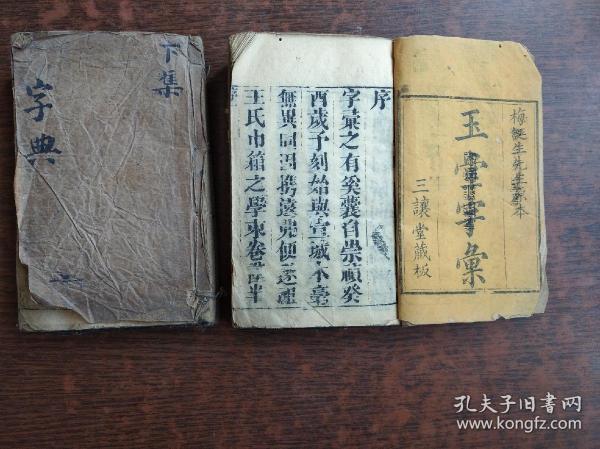 下集
字典
梅誕生先生本
玉堂字彙
三讓堂藏板
序
字彙之有奚囊自崇禎癸
酉歲予刻始與宣城本毫
無異同因携遠便遂
王氏巾箱之學東卷半
孔夫子旧书网
www.kongfz.com